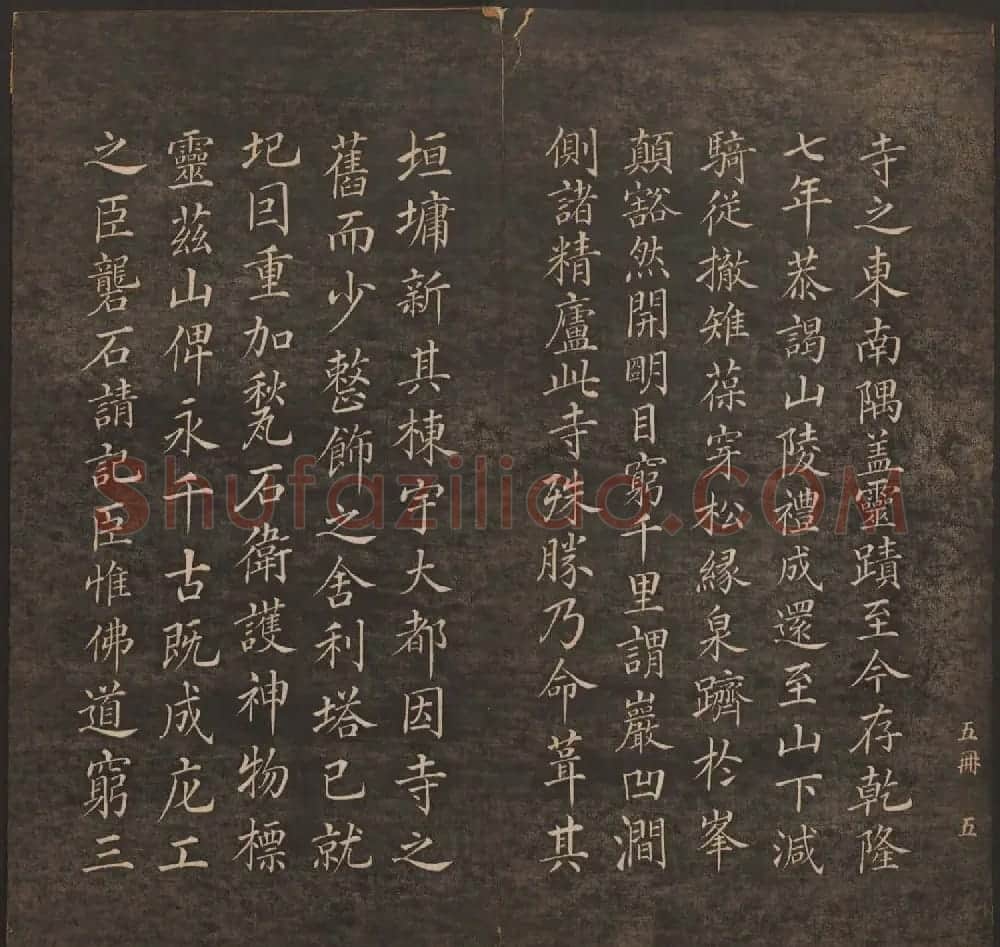 寺之東南隅盖靈蹟至今存乾隆
七年恭謁山陵禮成還至山下減
騎従撤雉葆穿松縁泉躋於峯
顛豁然開明目窮千里謂巖凹澗
側諸精廬此寺殊勝乃命葺其
垣墉新其棟宇大都因寺之
舊而少整飾之舍利塔已就
圮囙重加甃石衛護神物標
靈茲山俾永千古既成庀工
之臣礱石請記臣惟佛道窮三
五冊 五
Shufaziliao.COM